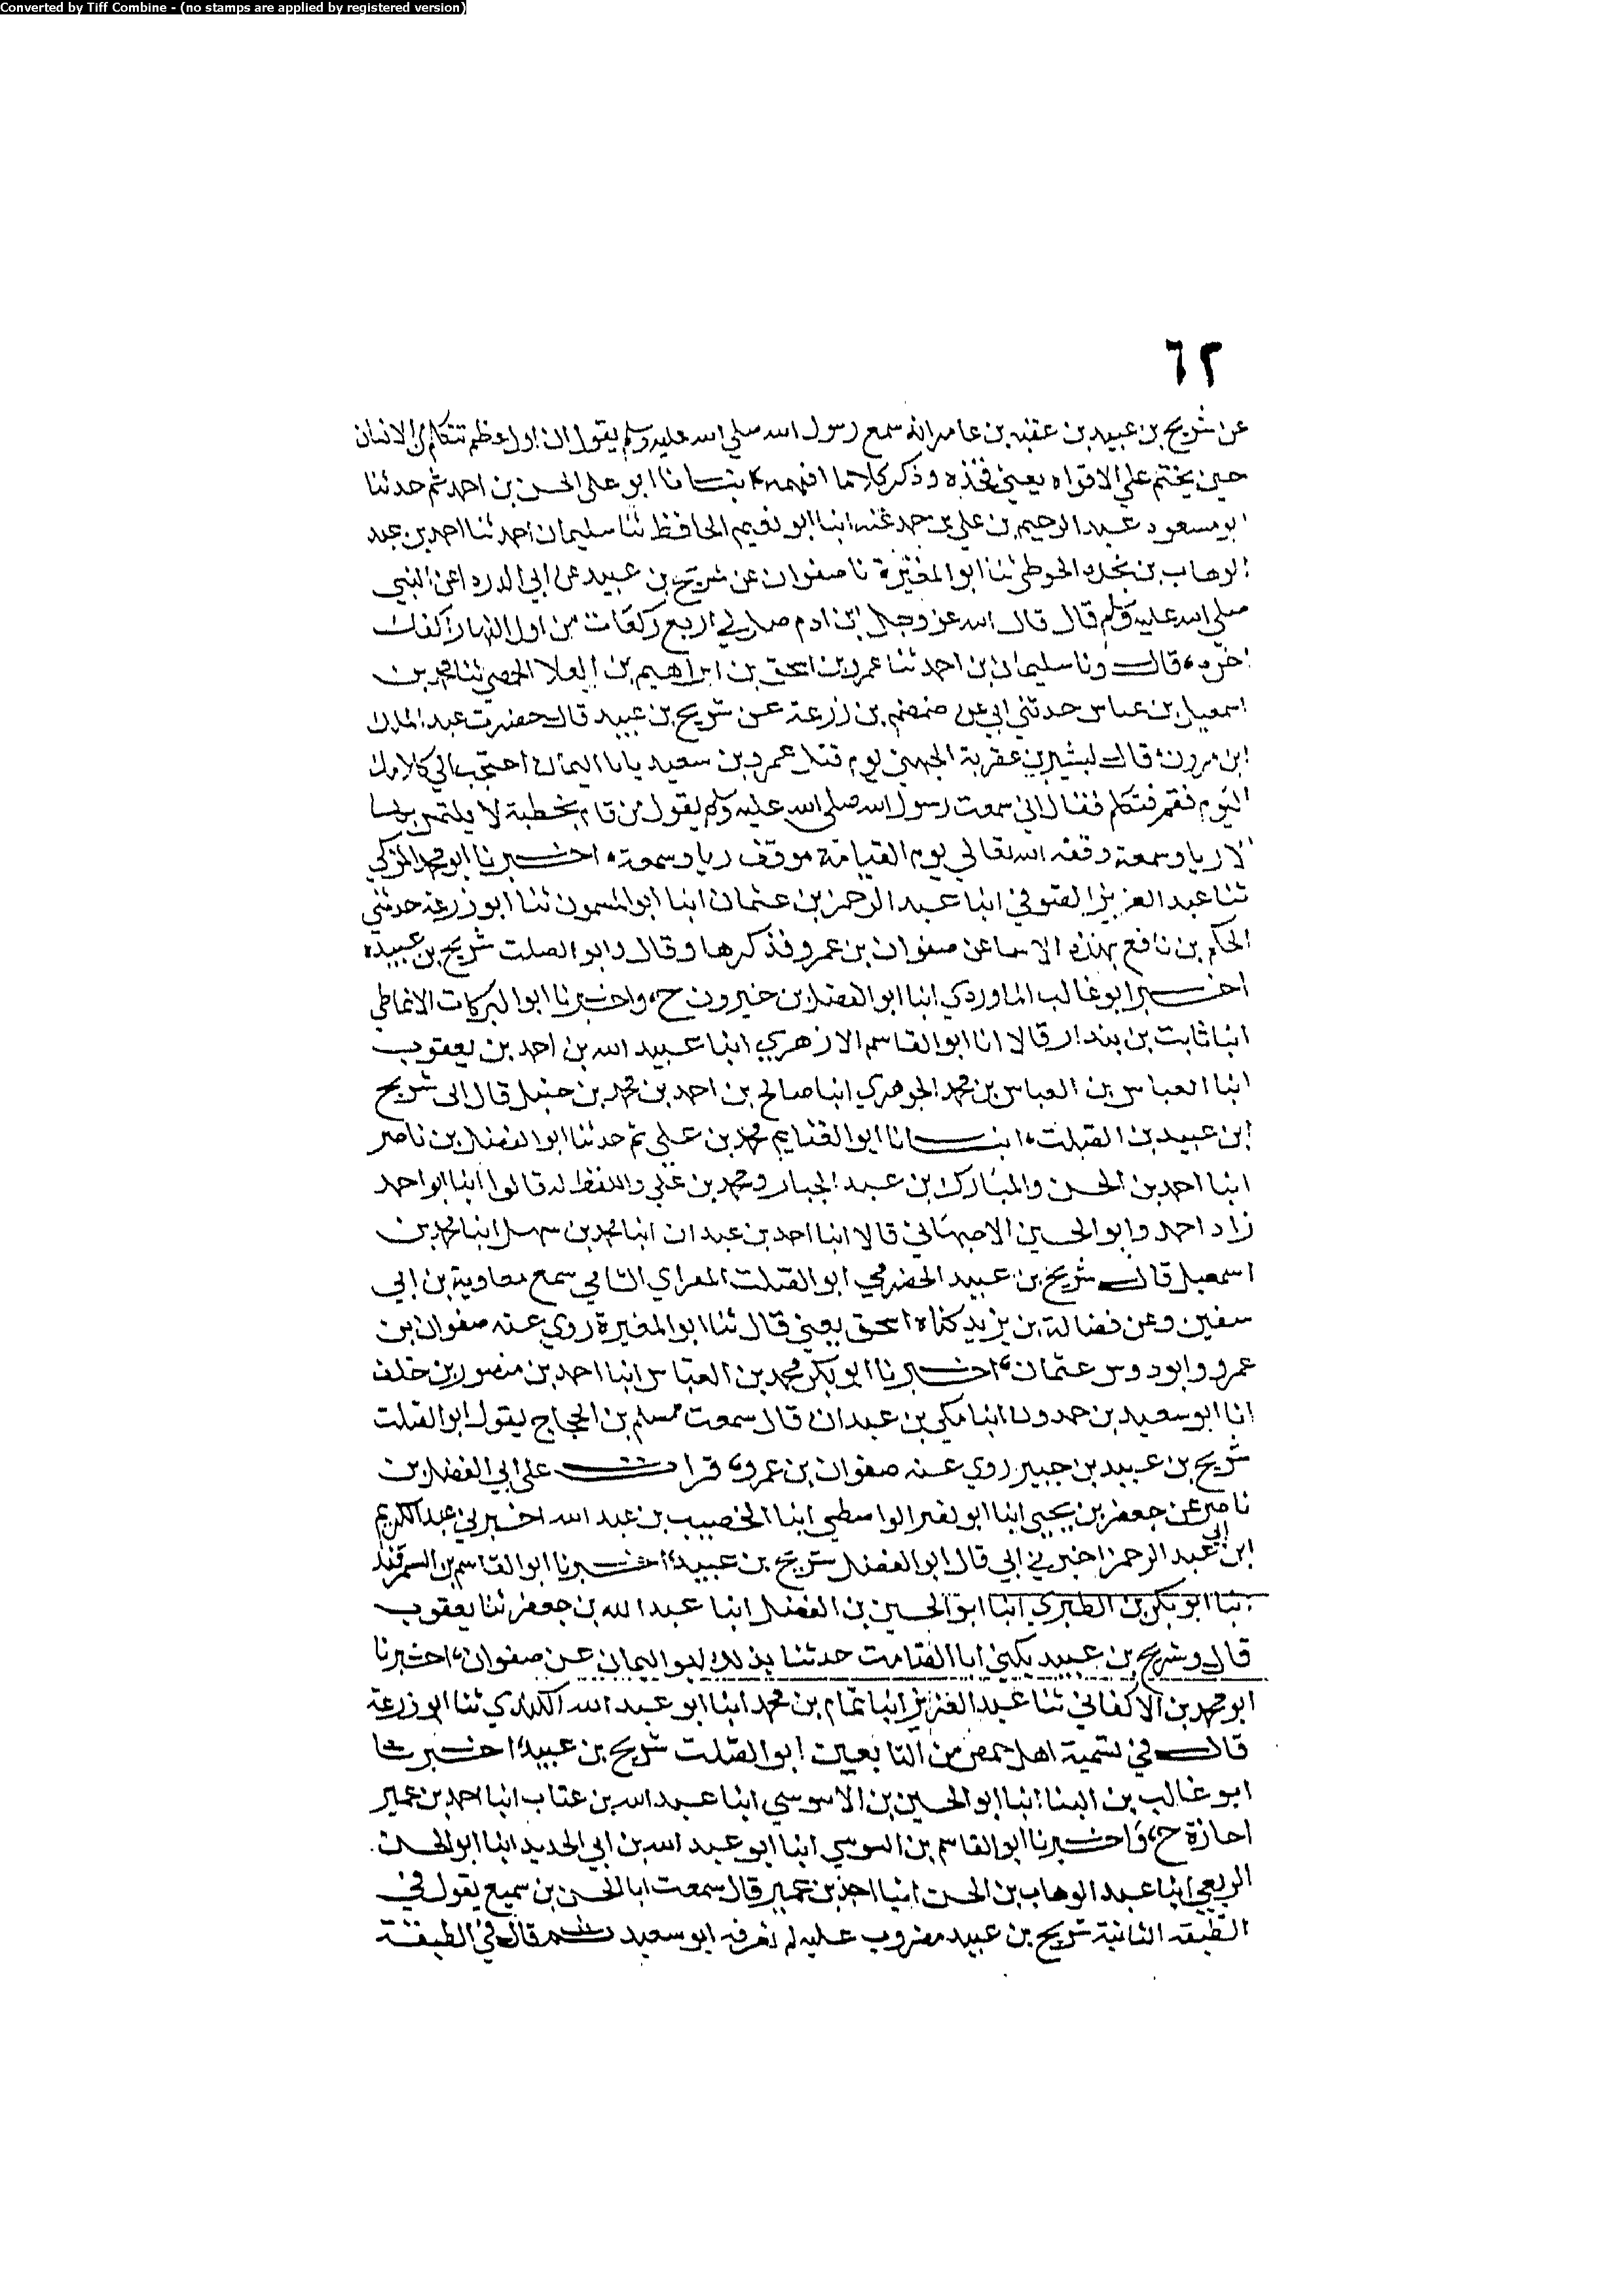 Converted by Tiff Combine - (no stamps are applied by registered version)
٦٢
عن شريح بن عبيد بن عقبه بن عامر انه سمع رسول الله صلي الله عليه وسلم يقول ان اول عظم تتكلم من الانسان
حين يختم علي الافواه يعني فخذه وذكر كلاما افهمه انبانا ابو علي الحسن بن احمد ثم حدثنا
ابو مسعود عبد الرحيم بن علي بن حمد عنه انبا ابو نعيم الحافظ ثنا سليمان احمد ثنا احمد بن عبد
الوهاب بن نجده الحوطي ثنا ابو المغيرة نا صفوان عن شريح بن عبيد عن ابي الدرداء عن النبي
صلي الله عليه وسلم قال قال الله عز وجل ابن ادم صل لي اربع ركعات من اول النهار اكفك
اخره قال ونا سليمان بن احمد ثنا عمرو بن اسحق بن ابراهيم بن العلا الحمصي ثنا محمد بن
اسمعيل بن عياش حدثني ابي عن ضمضم بن زرعة عن شريح بن عبيد قال حضرت عبد الملك
ابن مرون قال لبشير بن عقربة الجهني يوم قتل عمرو بن سعيد يابا اليمان احتجب الي كلامك
اليوم فقم فتكلم فقال اني سمعت رسول الله صلي الله عليه وسلم يقول من قام بخطبة لا يلتمس بها
الا ريا وسمعة وقفه الله تعالي يوم القيامة موقف ريا وسمعة اخبرنا ابو محمد المزكي
ثنا عبد العزيز الصوفي انبا عبد الرحمن بن عثمان انبا ابو الميمون ثنا ابو زرعة حدثني
الحكم بن نافع بهذه الاسما عن صفوان بن عمرو فذكرها وقال وابو الصلت شريح بن عبيد
اخبرنا ابو غالب الماوردي انبا ابو الفضل بن خيرون ح واخبرنا ابو البركات الانماطي
انبا ثابت بن بندار قالا انا ابو القاسم الازهري انبا عبيد الله بن احمد بن يعقوب
انبا العباس بن العباس بن محمد الجوهري انبا صالح بن احمد بن محمد بن حنبل قال ابي شريح
ابن عبيد بن الصلت انبانا ابو الغنايم محمد بن علي ثم حدثنا ابو الفضل بن ناصر
انبا احمد بن الحسن والمبارك بن عبد الجبار ومحمد بن علي واللفظ له قالوا انبا ابو احمد
زاد احمد وابو الحسين الاصبهاني قالا انبا احمد بن عبدان انبا محمد بن سهل انبا محمد بن
اسمعيل قال شريح بن عبيد الحضرمي ابو الصلت المعراي الشامي سمع معاوية بن ابي
سفين وعن فضالة بن يزيد كناه اسحق يعني قال ثنا ابو المغيرة روي عنه صفوان بن
عمرو وابو دوس عثمان اخبرنا ابو بكر محمد بن العباس انبا احمد بن منصور بن خلف
انا ابو سعيد بن حمدون انبا مكي بن عبدان قال سمعت مسلم بن الحجاج يقول ابو الصلت
شريح بن عبيد بن جبير روي عنه صفوان بن عمرو قرات علي ابي الفضل بن
ناصر عن جعفر بن يحيي انبا ابو نصر الواسطي انبا الخصيب بن عبد الله اخبرني عبد الكريم
ابن ابي عبد الرحمن اخبرني ابي قال ابو الفضل شريح بن عبيد اخبرنا ابو القاسم بن السمرقندي
انبا ابو بكر بن الطبري انبا ابو الحسين بن الفضل انبا عبد الله بن جعفر ثنا يعقوب
قال وشريح بن عبيد يكني ابا الصامت حدثنا بذلك ابو اليمان عن صفوان اخبرنا
ابو محمد بن الاكفاني ثنا عبد العزيز انبا تمام بن محمد انبا ابو عبد الله الكندي ثنا ابو زرعة
قال في تسمية اهل حمص من التابعين ابو الصلت شريح بن عبيد اخبرنا
ابو غالب بن البنا انبا ابو الحسين بن الابنوسي انبا عبد الله بن عتاب انبا احمد بن عمير
اجازة ح واخبرنا ابو القاسم بن السوسي انبا ابو عبد الله بن ابي الحديد انبا ابو الحسن
الربعي انبا عبد الوهاب بن الحسن انبا احمد بن عمير قال سمعت ابا الحسن بن سميع يقول في
الطبقة الثانية شريح بن عبيد مضروب عليه لم نعرفه ابو سعيد ثم قال في الطبقة